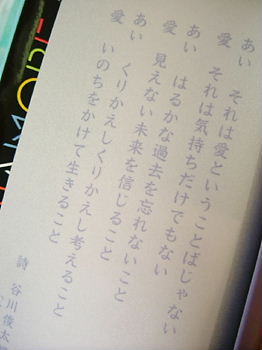 あい
愛 それは愛ということばじゃない
それは気持ちだけでもない
あい
愛 はるかな過去を忘れないこと
見えない未来を信じること
あい
愛 くりかえしくりかえし考えること
いのちをかけて生きること
詩 谷川俊太